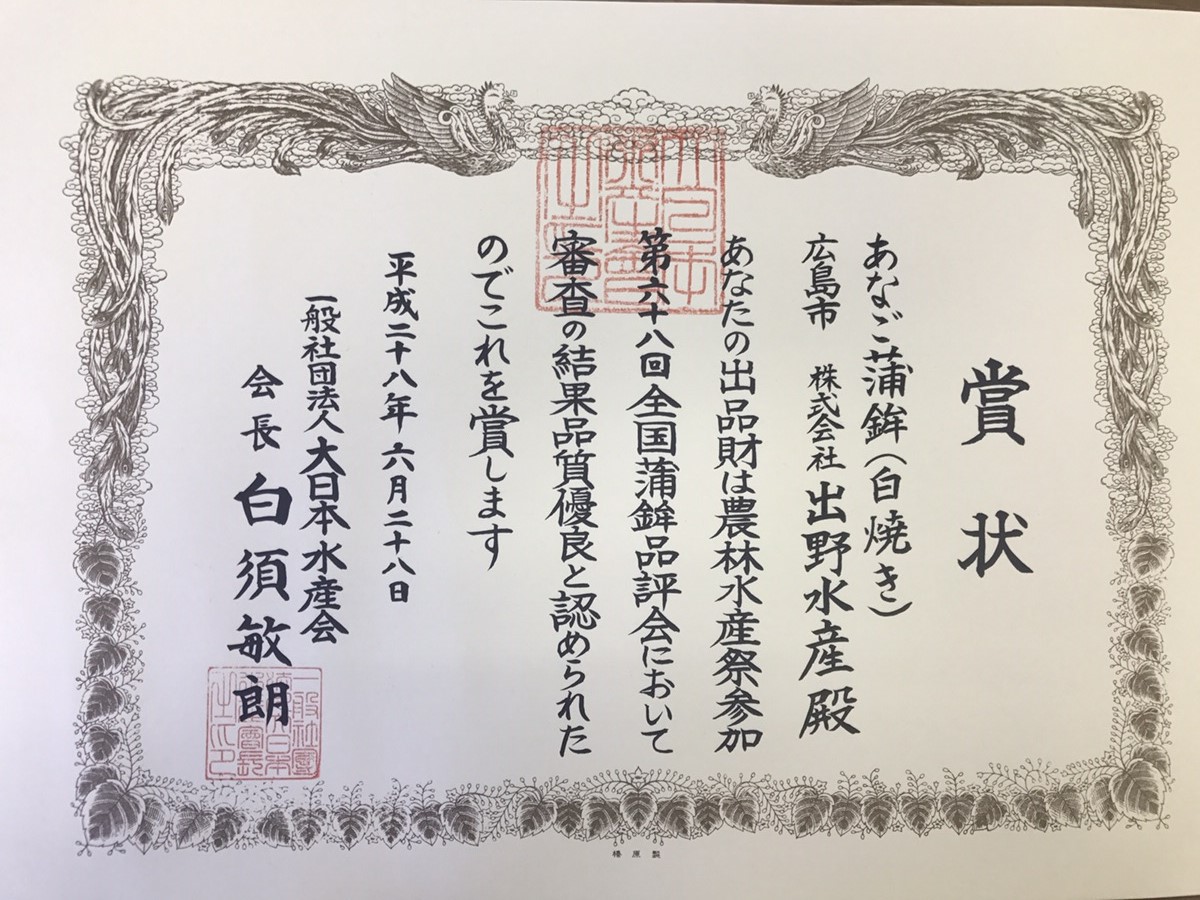 賞状
あなご蒲鉾(白焼き)
広島市 株式会社 出野水産殿
あなたの出品財は農林水産祭参加
第六十八回全国蒲鉾品評会において
審査の結果品質優良と認められた
のでこれを賞します
平成二十八年六月二十八日
一般社団法人大日本水産会
会長 白須敏朗
榛原製